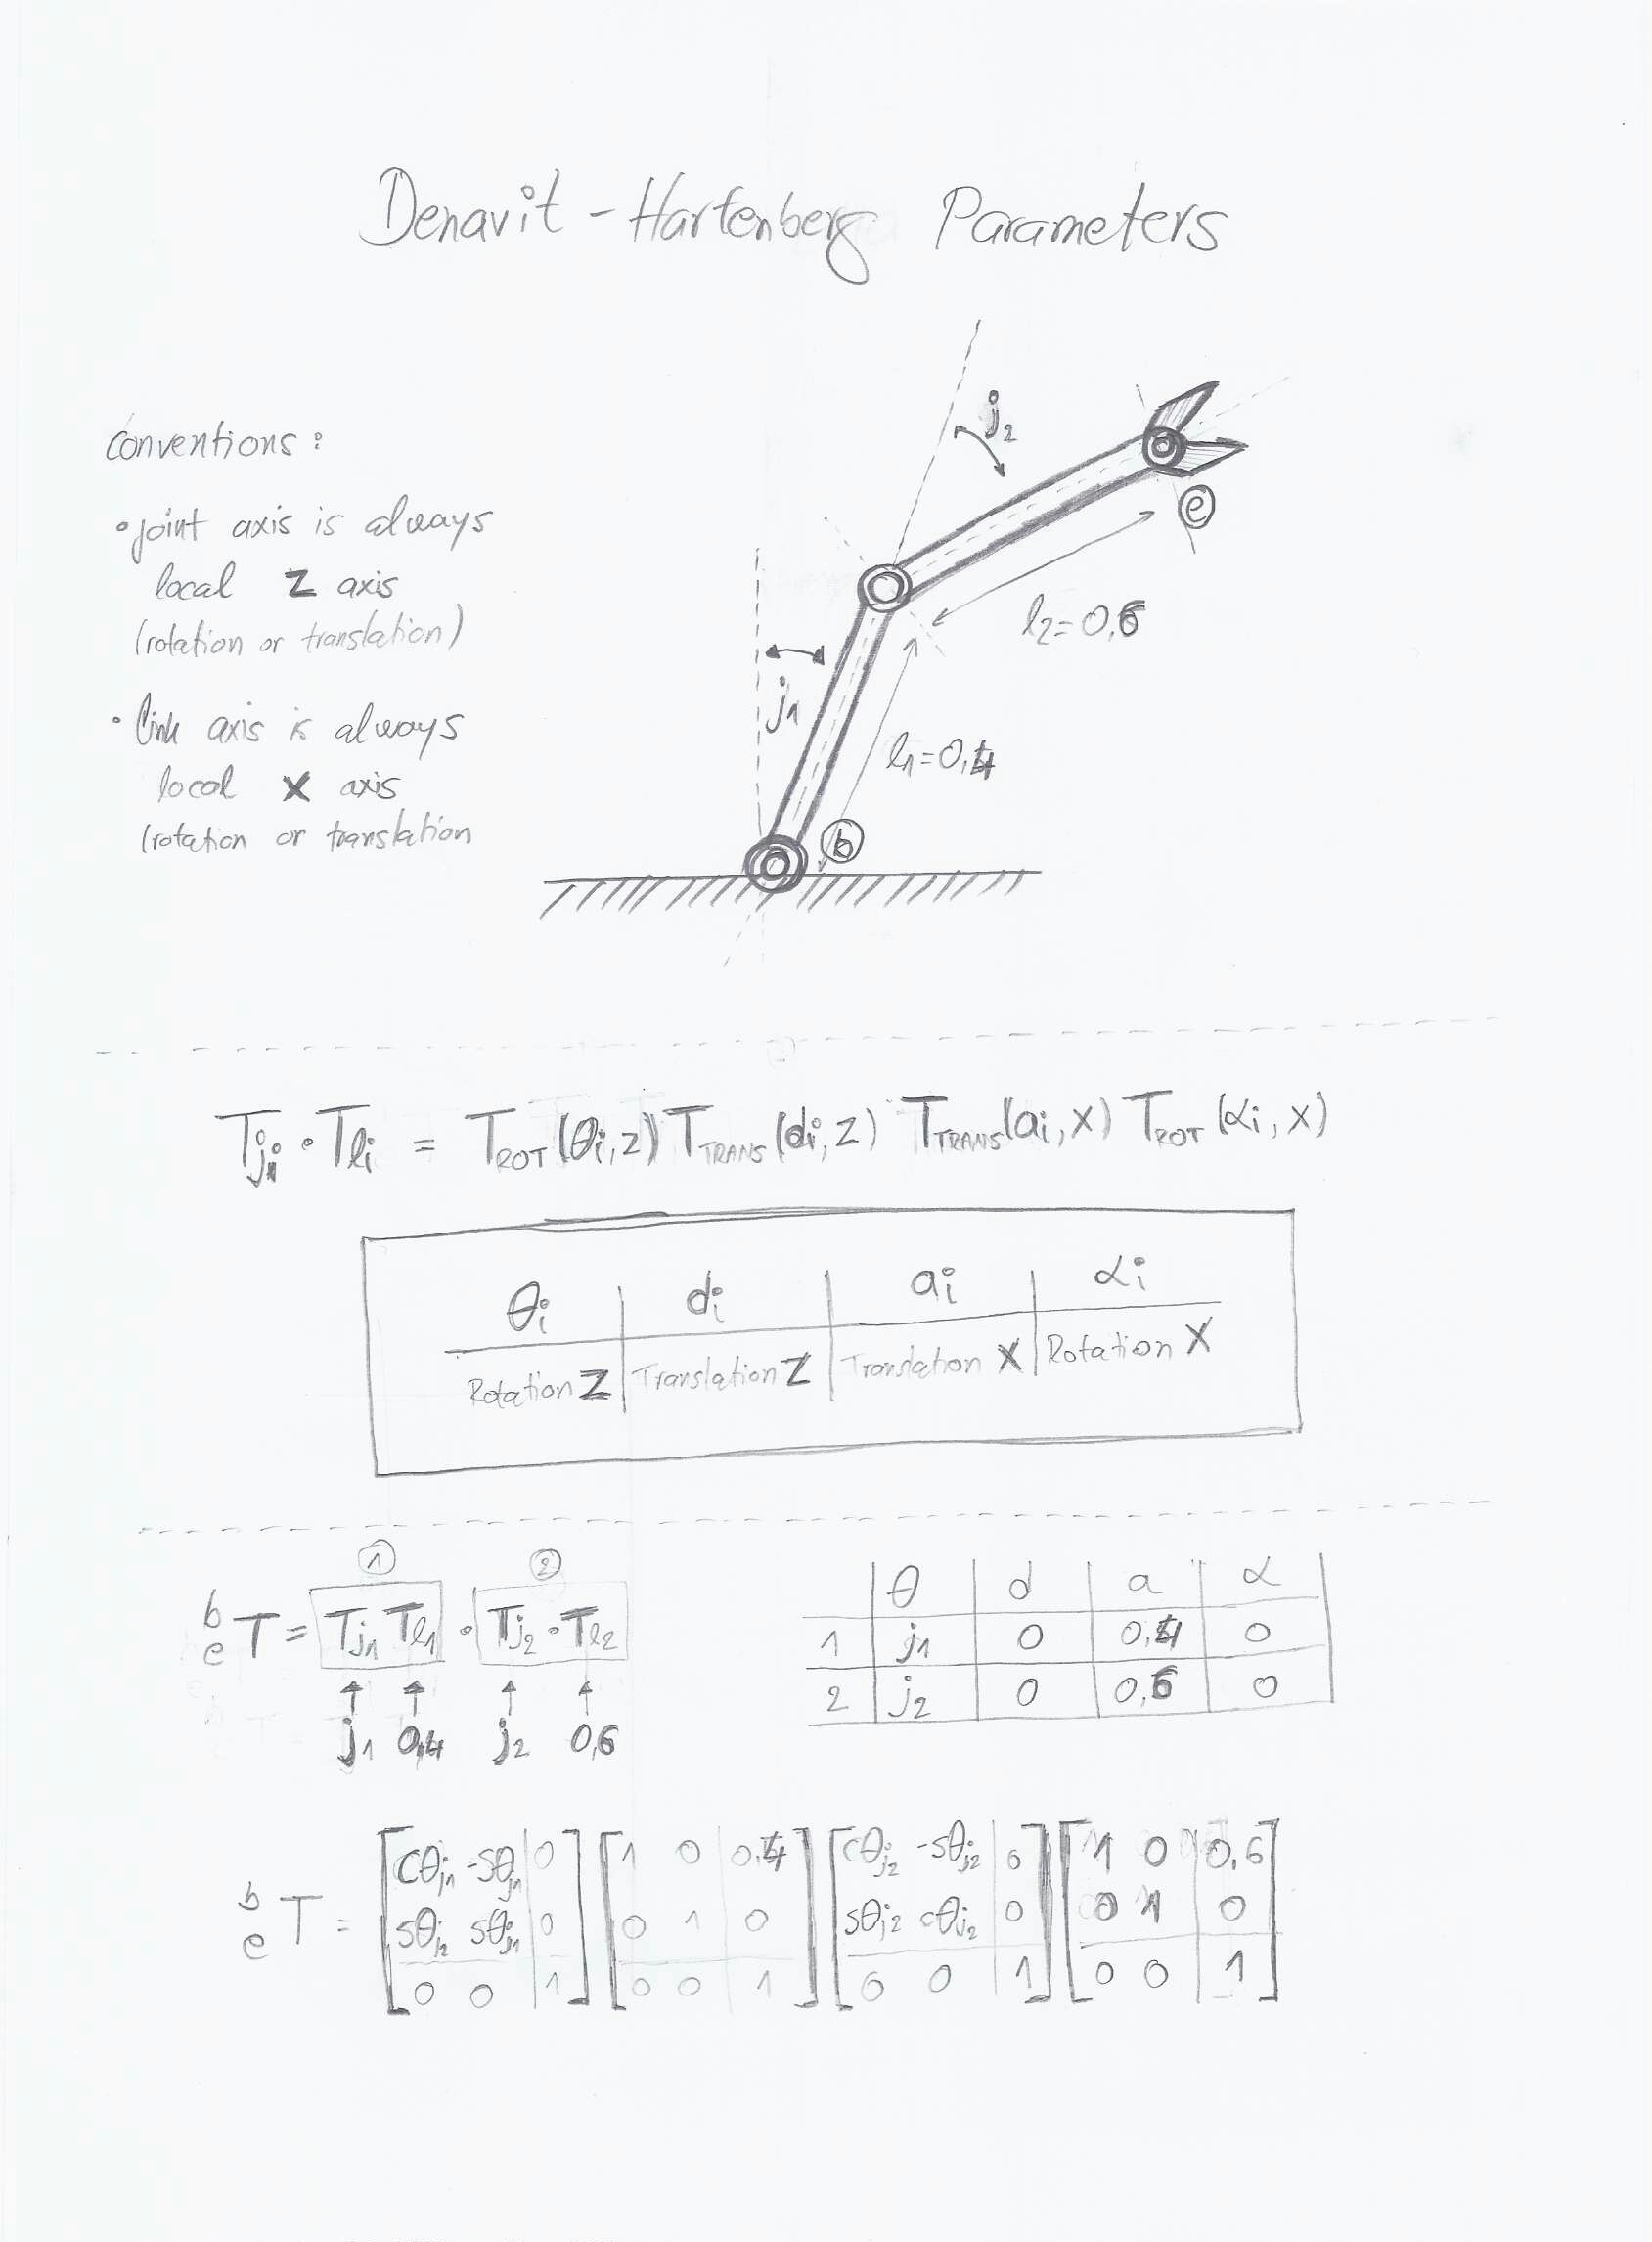 Denavit-Hartenberg Parameters
conventions:
• joint axis is always
local Z axis
(rotation or translation)
• link axis is always
local X axis
(rotation or translation
j₂
e
l₂=0,6
j₁
l₁=0,4
b
Tⱼᵢ · Tₗᵢ = T_ROT (θi, z) T_TRANS (di, z) T_TRANS (ai, x) T_ROT (αi, x)
θi | di | ai | αi
Rotation Z | Translation Z | Translation X | Rotation X
① ②
b e T = Tj₁ Tl₁ · Tj₂ · Tl₂
j₁ 0,4 j₂ 0,6
θ d a α
1 j₁ 0 0,4 0
2 j₂ 0 0,6 0
b e T =
cθj₁ -sθj₁ 0 1 0 0,4 cθj₂ -sθj₂ 0 1 0 0,6
sθj₂ sθj₁ 0 0 1 0 sθj₂ cθj₂ 0 0 1 0
0 0 1 0 0 1 0 0 1 0 0 1